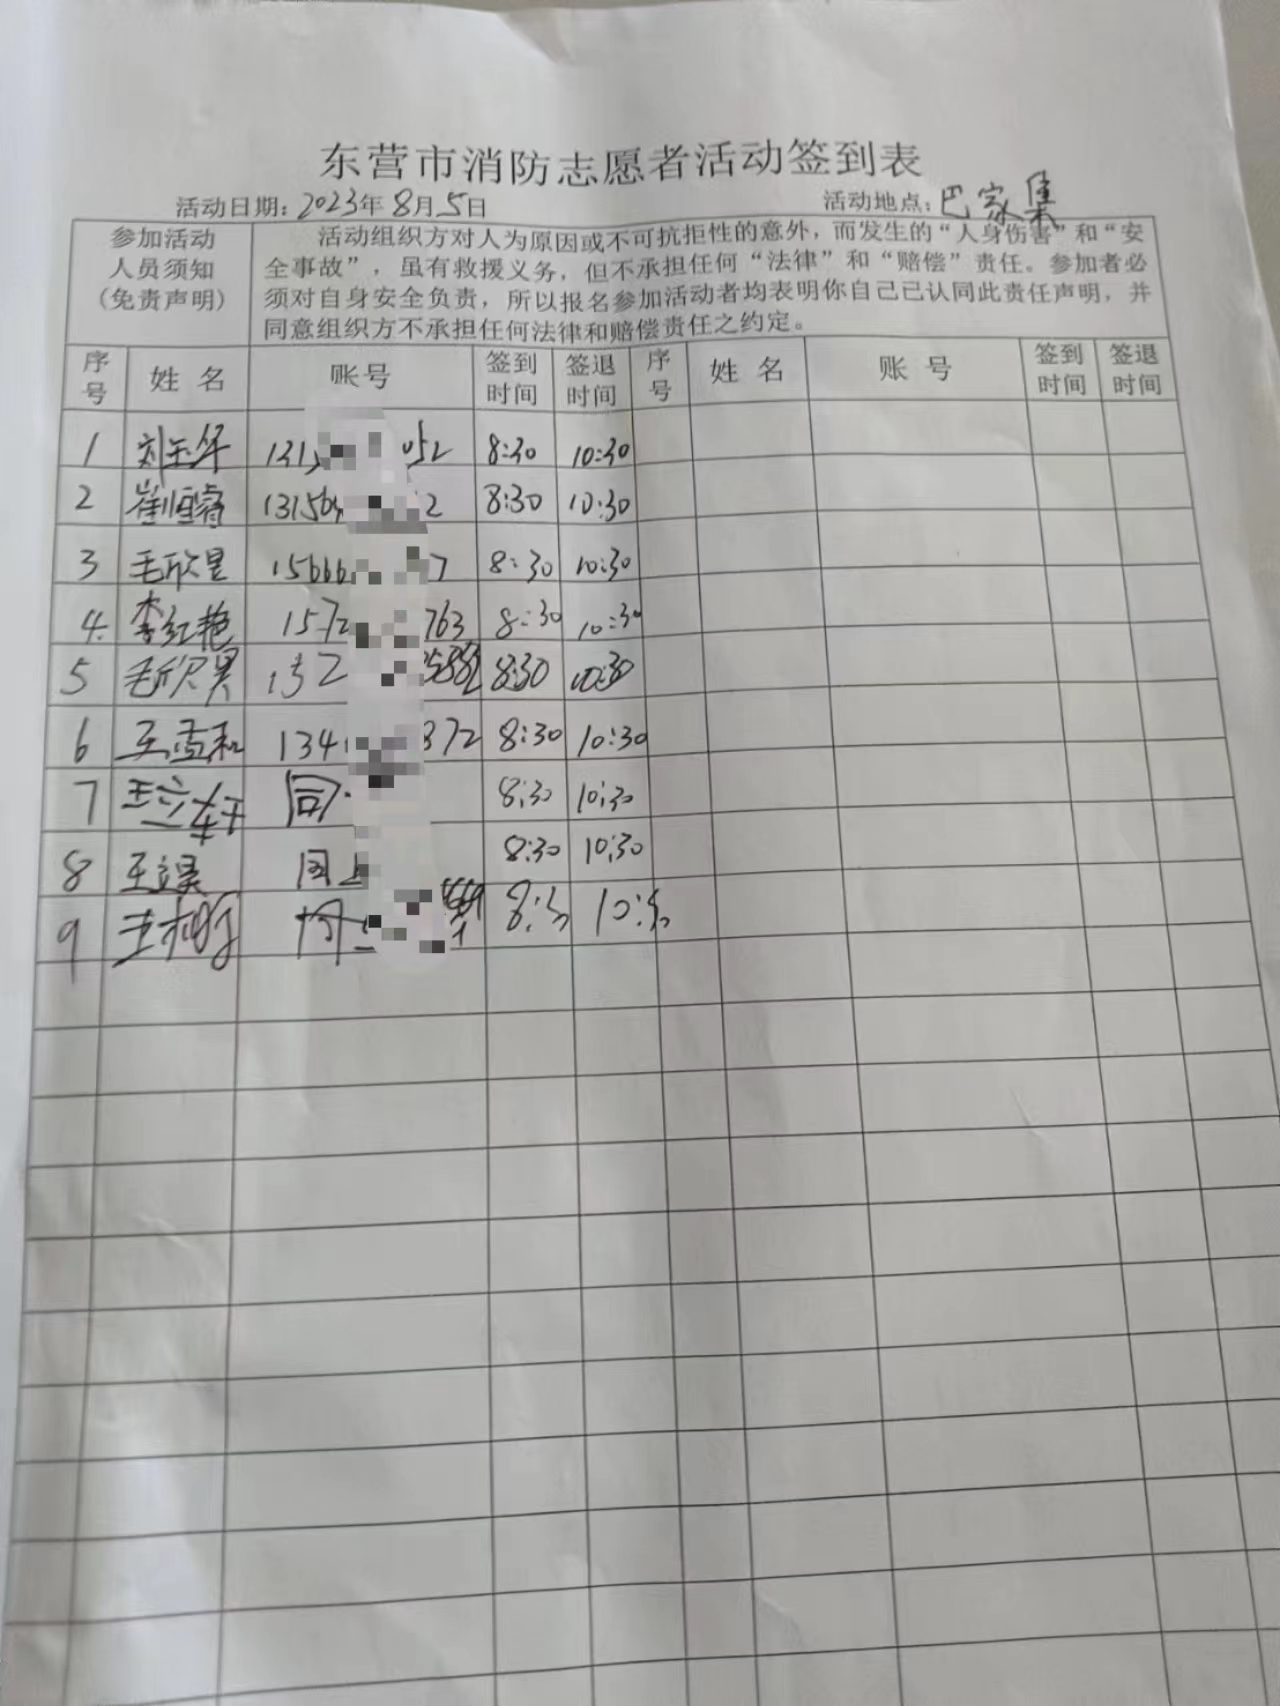 东营市消防志愿者活动签到表
活动日期：2023年8月5日 活动地点：巴家集
参加活动
人员须知
(免责声明)
活动组织方对人为原因或不可抗拒性的意外，而发生的“人身伤害”和“安
全事故”，虽有救援义务，但不承担任何“法律”和“赔偿”责任。参加者必
须对自身安全负责，所以报名参加活动者均表明你自己已认同此责任声明，并
同意组织方不承担任何法律和赔偿责任之约定。
序号 姓名 账号 签到时间 签退时间 序号 姓名 账号 签到时间 签退时间
1 刘玉华 131 052 8:30 10:30
2 崔恒睿 13156 2 8:30 10:30
3 毛欣昱 15666 7 8:30 10:30
4. 李红艳 1572 763 8:30 10:30
5 毛欣昊 132 8:30 10:30
6 王孟和 134 372 8:30 10:30
7 王立轩 同 8:30 10:30
8 王立昊 同上 8:30 10:30
9 8:30 10:30